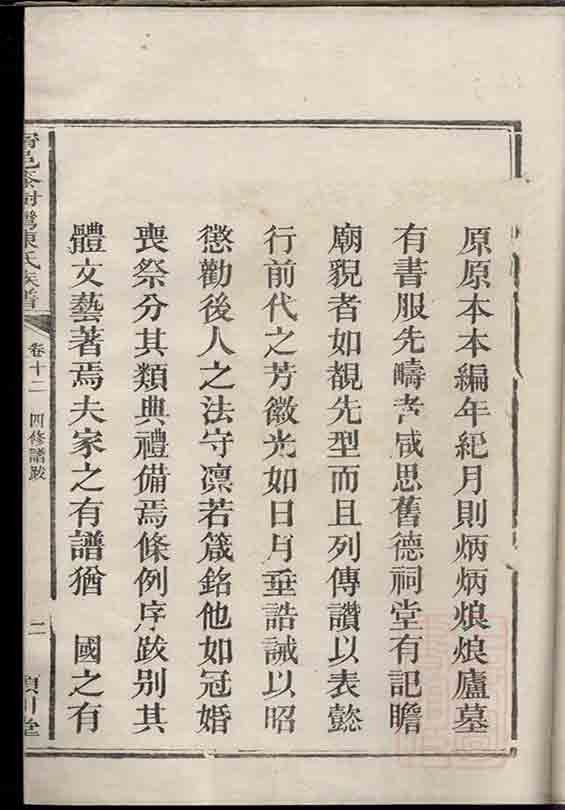 原原本本編年紀月則炳炳烺烺廬墓
有書服先疇者咸思舊德祠堂有記瞻
廟貌者如覩先型而且列傳讚以表懿
行前代之芳徽光如日月垂誥誡以昭
懲勸後人之法守凛若箴銘他如冠婚
喪祭分其類典禮備焉條例序跋别其
體文藝著焉夫家之有譜猶 國之有
陳氏族譜 卷十二 四修譜跋 二 川堂